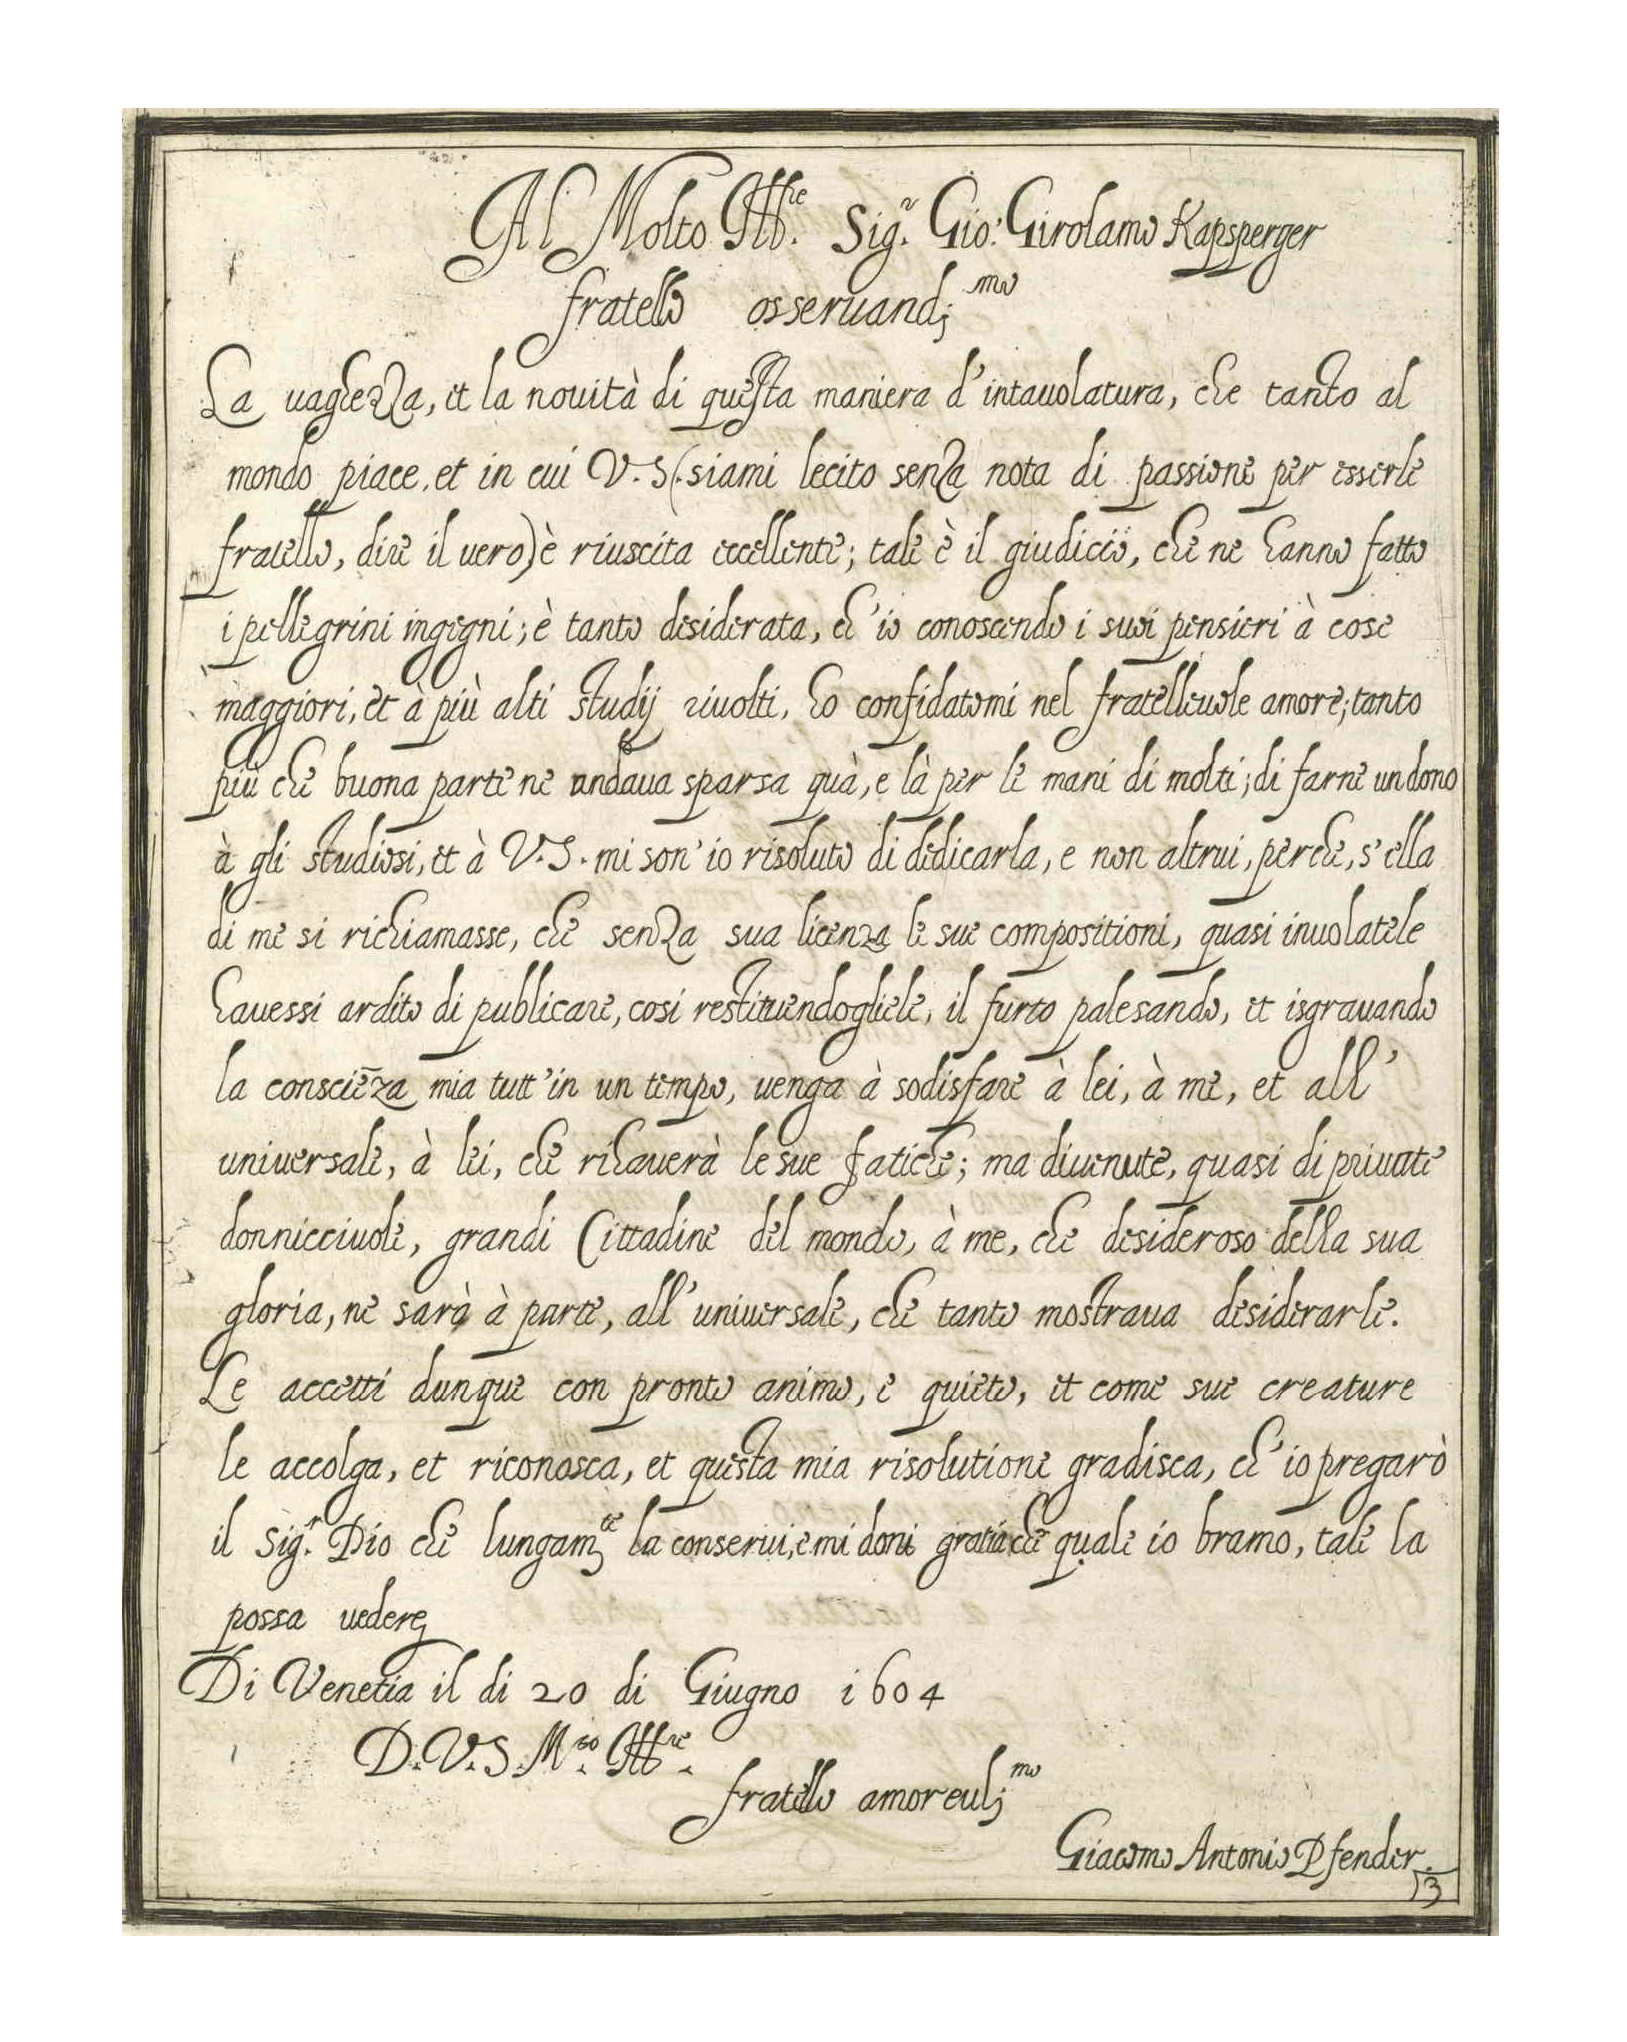 Al Molto Ill.re Sig.r Gio: Girolamo Kapsperger
fratello osseruandj.mo
La uaghezza, et la nouità di questa maniera d'intauolatura, che tanto al
mondo piace, et in cui V.S. (siami lecito senza nota di passione per esserle
fratello, dire il uero) è riuscita eccellente; tale è il giudicio, che ne hanno fatto
i pellegrini ingegni; è tanto desiderata, ch'io conoscendo i suoi pensieri à cose
maggiori, et à più alti studij riuolti, ho confidatomi nel fratelleuole amore; tanto
più che buona parte ne andaua sparsa quà, e là per le mani di molti; di farne un dono
à gli studiosi, et à V.S. mi son'io risoluto di dedicarla, e non altrui, perche, s'ella
di me si richiamasse, che senza sua licenza le sue compositioni, quasi inuolatele
hauessi ardito di publicare, cosi restituendogliele, il furto palesando, et isgrauando
la consciēza mia tutt'in un tempo, uenga à sodisfare à lei, à me, et all'
uniuersale, à lei, che rihauerà le sue fatiche; ma diuenute, quasi di priuate
donnicciuole, grandi Cittadine del mondo, à me, che desideroso della sua
gloria, ne sarò à parte, all'uniuersale, che tanto mostraua desiderarle.
Le accetti dunque con pronto animo, e quieto, et come sue creature
le accolga, et riconosca, et questa mia risolutione gradisca, ch'io pregarò
il Sig.r Dio che lungam.te la conserui, e mi doni gratia che quale io bramo, tale la
possa uedere
Di Venetia il di 20 di Giugno 1604
D.V.S.M.to Ill.re
fratello amoreulj.mo
Giacomo Antonio Pfender.
3